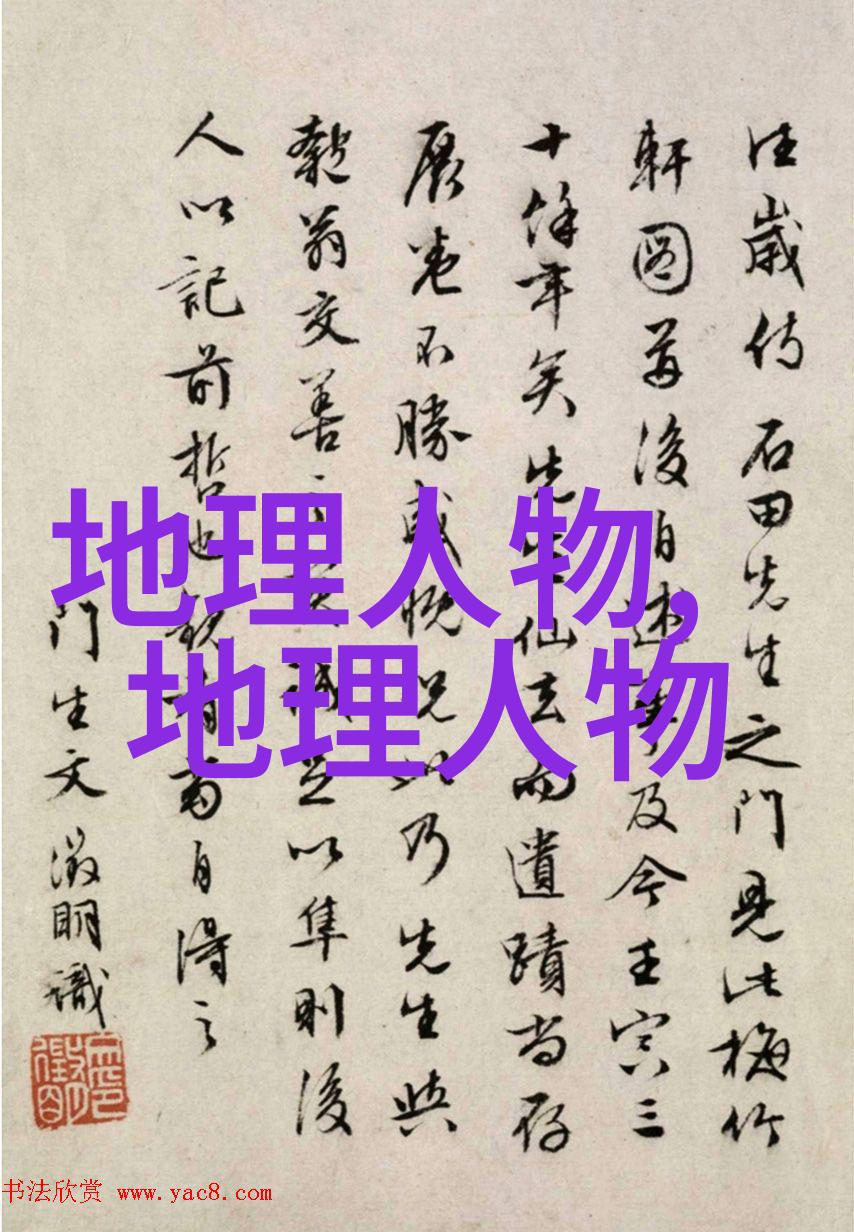 往歲侍 石田先生之門見此梅竹
軒圖後自述及今壬寅三
十餘年矣先生仙去而遺蹟尚存
展卷不勝感慨況此乃先生與
匏翁交善之足以隼則後
人以記前哲也自得之
門生文徵明識
地理人物,
地理人物
书法欣赏 www.yac8.com